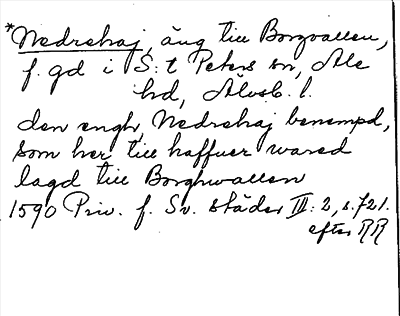 *Nedrehaj, äng till Borgvallen,
f. gd i S:t Peters sn, Ale
hd, Älvsb. l.
den engh, Nedrehaj benempd,
som her till haffuer wared
lagd till Borghwallen
1590 Priv. f. Sv. städer III: 2, s. 721.
efter RR